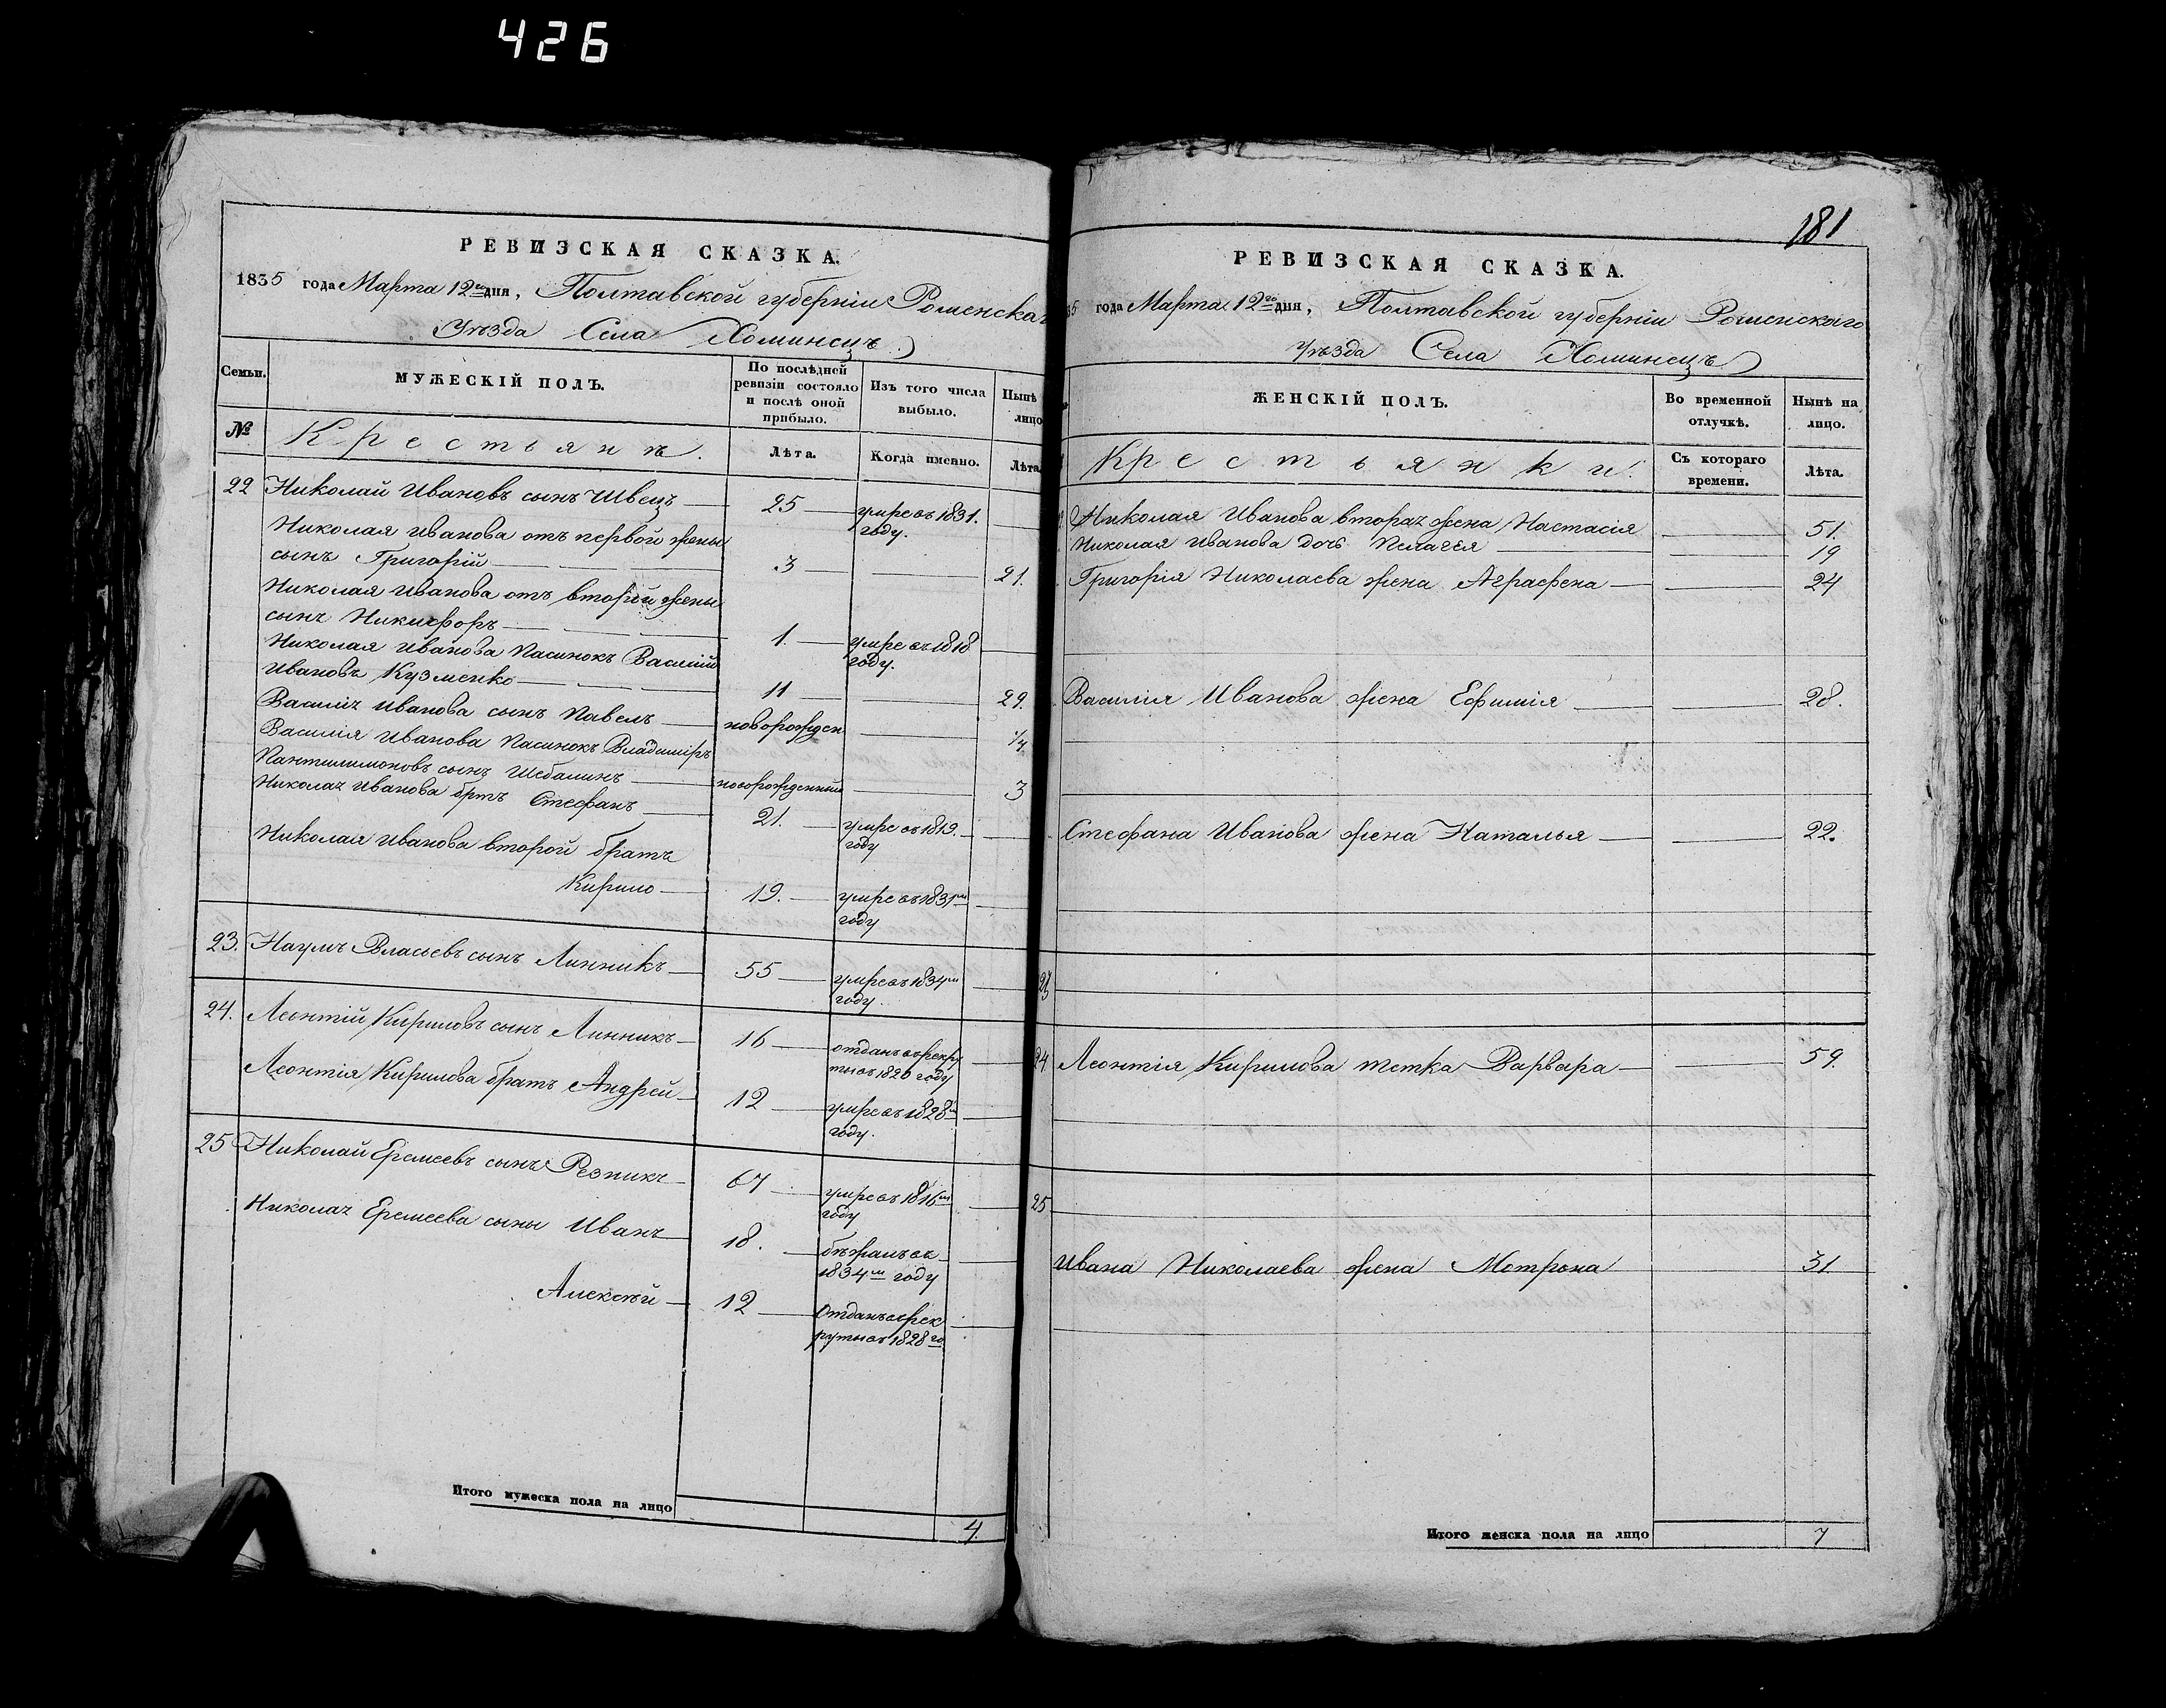 426
РЕВИЗСКАЯ СКАЗКА.
1835 года Марта 12го дня, Полтавской губерніи Роменска
Уѣзда Села Хоминецъ
Семьи.
МУЖЕСКІЙ ПОЛЪ.
По послѣдней ревизіи состояло и послѣ оной прибыло.
Изъ того числа выбыло.
Нынѣ лицо
№
Крестьянѣ.
Лѣта.
Когда именно.
Лѣта
22 Николай Ивановъ сынъ Швецъ 25 умре въ 1831. году.
Николая Иванова отъ первой жены
сынъ Григорій 3 21.
Николая Иванова отъ второй жены
сынъ Никифоръ 1. умре въ 1818 году.
Николая Иванова пасинокъ Василій
Ивановъ Кузменко 11 29.
Василія Иванова сынъ Павелъ новорожден 1/4
Василія Иванова пасинокъ Владиміръ
Пантилимоновъ сынъ Шебалинъ новорожденный 3
Николая Иванова братъ Стефанъ 21. умре въ 1819. году
Николая Иванова второй братъ
Кирило 19. умре въ 1831м году
23. Наумъ Власьевъ сынъ Линникъ 55 умре въ 1834м году.
24. Леонтій Кириловъ сынъ Линникъ 16 отданъ въ рекру ты въ 1820 году
Леонтія Кирилова братъ Андрей 12 умре въ 1828м году.
25 Николай Еремеевъ сынъ Резникъ 67 умре въ 1816м году
Николая Еремеева сыны Иванъ 18. бѣжалъ въ 1834м году
Алексѣй 12 отданъ въ рек руты въ 1828го
Итого мужеска пола на лицо 4
181
РЕВИЗСКАЯ СКАЗКА.
35 года Марта 12го дня, Полтавской губерніи Роменскаго
Уѣзда Села Хоминецъ
ЖЕНСКІЙ ПОЛЪ.
Во временной отлучкѣ.
Нынѣ на лицо.
Крестьянки.
Съ котораго времени.
Лѣта.
Николая Иванова втора жена Настасія 51.
Николая Иванова дочь Пелагея 19
Григорія Николаева жена Аграфена 24
Василія Иванова жена Ефимія 28.
Стефана Иванова жена Наталья 22.
23
24 Леонтія Кирилова тетка Варвара 59.
25
Ивана Николаева жена Мотрона 31
Итого женска пола на лицо 7